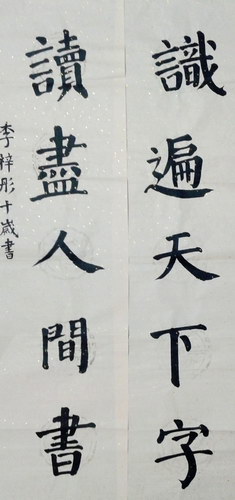 識遍天下字
讀盡人間書
李梓彤十歲書